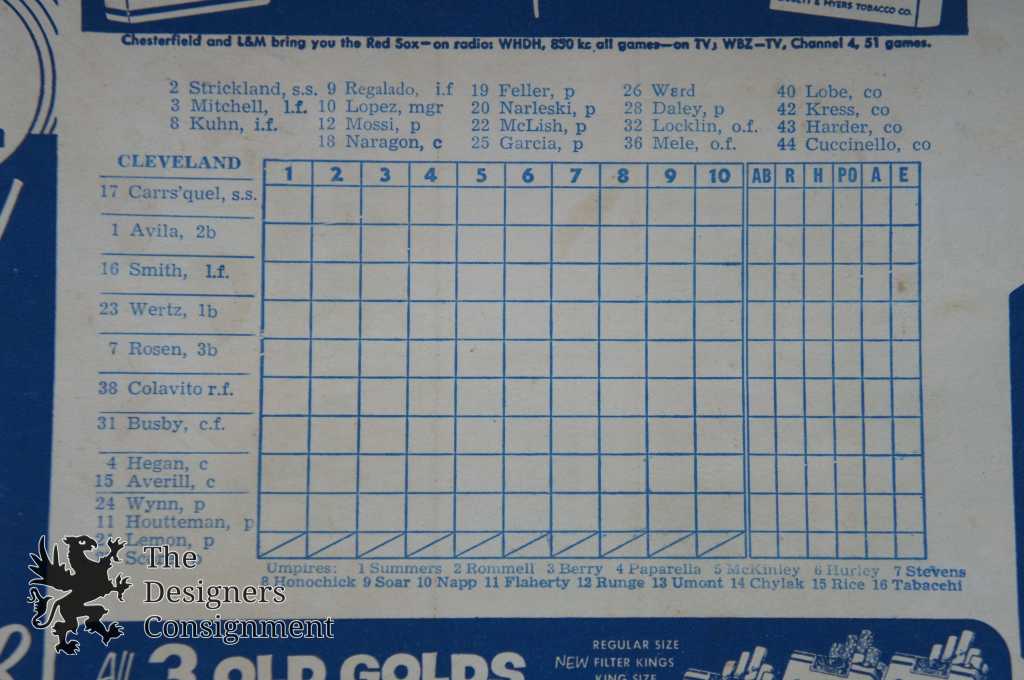 & MYERS TOBACCO CO.
Chesterfield and L&M bring you the Red Sox—on radio: WHDH, 850 kc all games—on TV; WBZ—TV, Channel 4, 51 games.
2 Strickland, s.s. 9 Regalado, i.f 19 Feller, p 26 Ward 40 Lobe, co
3 Mitchell, l.f. 10 Lopez, mgr 20 Narleski, p 28 Daley, p 42 Kress, co
8 Kuhn, i.f. 12 Mossi, p 22 McLish, p 32 Locklin, o.f. 43 Harder, co
18 Naragon, c 25 Garcia, p 36 Mele, o.f. 44 Cuccinello, co
CLEVELAND 1 2 3 4 5 6 7 8 9 10 AB R H PO A E
17 Carrs'quel, s.s.
1 Avila, 2b
16 Smith, l.f.
23 Wertz, 1b
7 Rosen, 3b
38 Colavito r.f.
31 Busby, c.f.
4 Hegan, c
15 Averill, c
24 Wynn, p
11 Houtteman, p
Lemon, p
Umpires: 1 Summers 2 Rommell 3 Berry 4 Paparella 5 McKinley 6 Hurley 7 Stevens
8 Honochick 9 Soar 10 Napp 11 Flaherty 12 Runge 13 Umont 14 Chylak 15 Rice 16 Tabacchi
The
Designers
Consignment
All 3 OLD GOLDS
REGULAR SIZE
NEW FILTER KINGS
KING SIZE